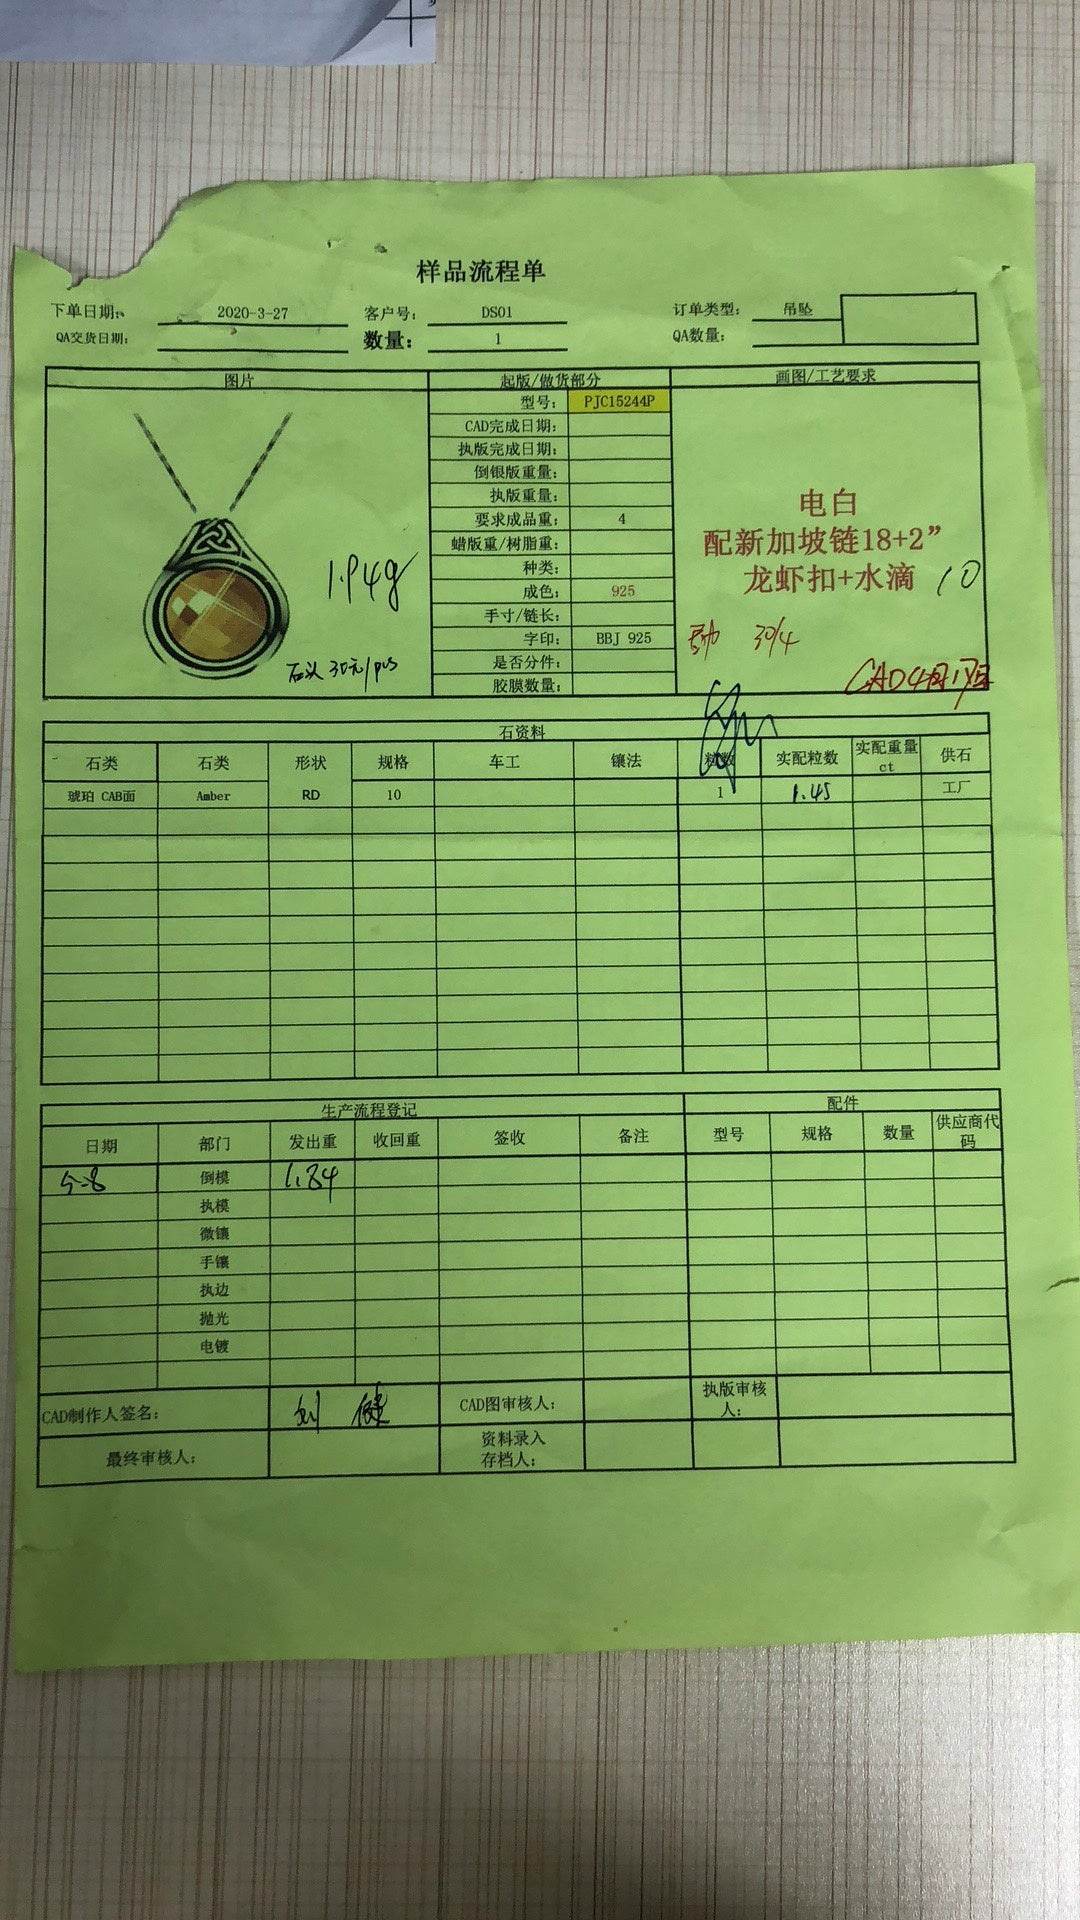 样品流程单
下单日期: 2020-3-27 客户号: DS01 订单类型: 吊坠
QA交货日期: 数量: 1 QA数量:
图片 起版/做货部分 画图/工艺要求
型号: PJC15244P
CAD完成日期:
执版完成日期:
倒银版重量:
执版重量:
要求成品重: 4
蜡版重/树脂重:
种类:
成色: 925
手寸/链长:
字印: BBJ 925
是否分件:
胶膜数量:
1.94g
石头 30元/pcs
电白
配新加坡链18+2”
龙虾扣+水滴 10
30/4
CAD4月17日
石资料
石类 石类 形状 规格 车工 镶法 粒数 实配粒数 实配重量ct 供石
琥珀 CAB面 Amber RD 10 1 1.45 工厂
生产流程登记 配件
日期 部门 发出重 收回重 签收 备注 型号 规格 数量 供应商代码
5-8 倒模 1.84
执模
微镶
手镶
执边
抛光
电镀
CAD制作人签名: CAD图审核人: 执版审核人:
最终审核人: 资料录入存档人: